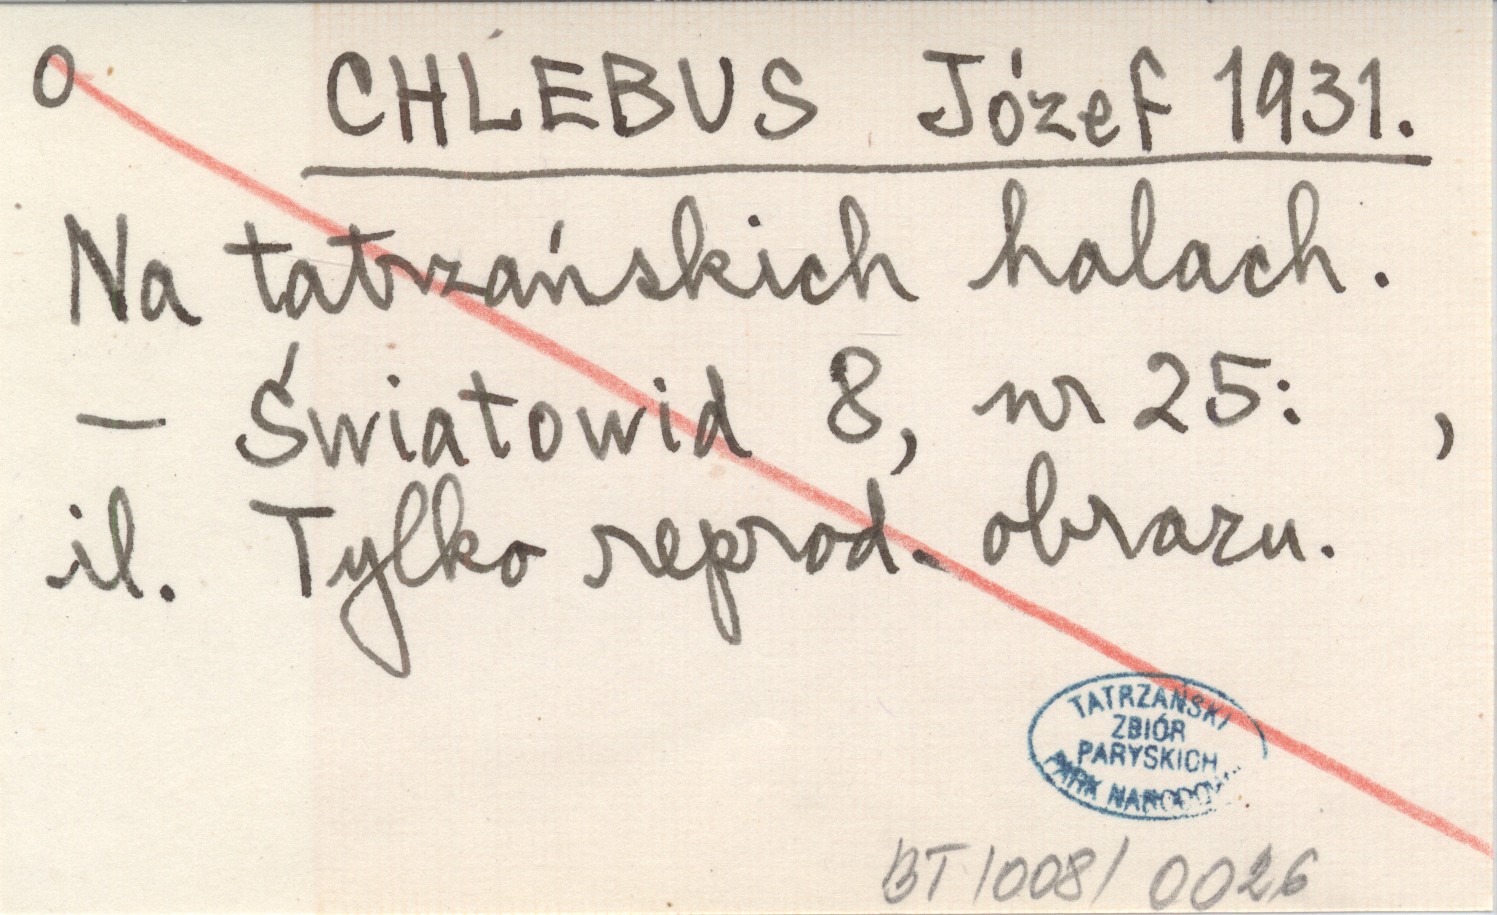 O CHLEBUS Józef 1931.
Na tatrzańskich halach.
— Światowid 8, nr 25: ,
il. Tylko reprod. obrazu.
TATRZAŃSKI
ZBIÓR
PARYSKICH
PARK NARODOWY
BT/008/0026